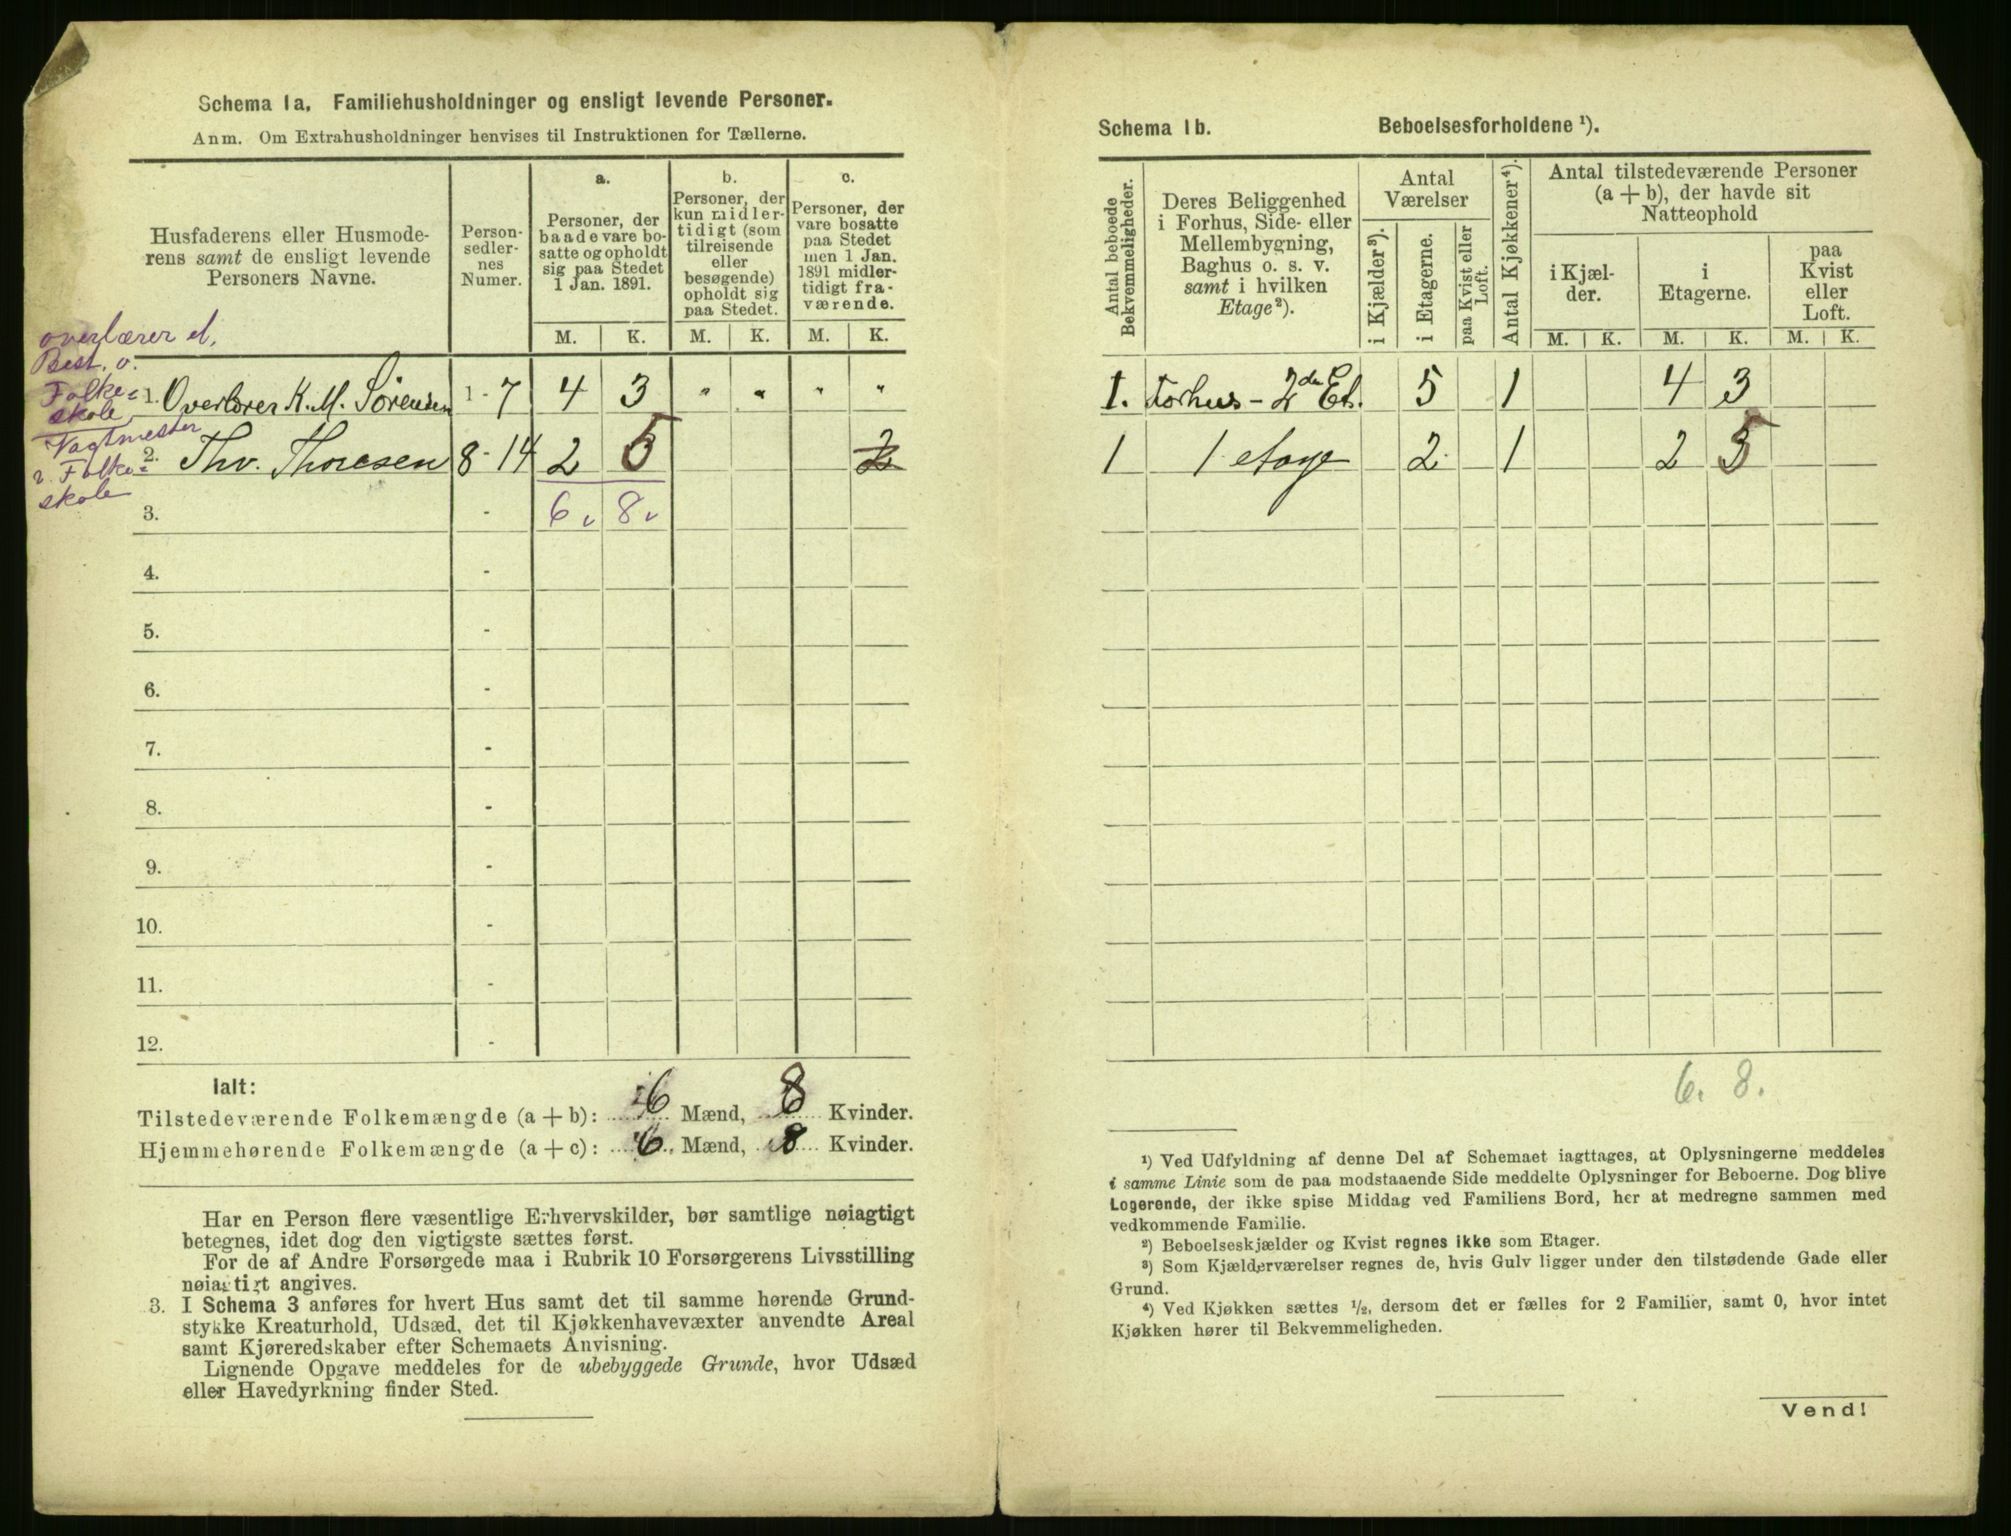 Schema 1a. Familiehusholdninger og ensligt levende Personer.
Anm. Om Extrahusholdninger henvises til Instruktionen for Tællerne.
Husfaderens eller Husmode-
rens samt de ensligt levende
Personers Navne.
Person-
sedler-
nes
Numer.
a.
Personer, der
baade vare bo-
satte og opholdt
sig paa Stedet
1 Jan. 1891.
b.
Personer, der
kun midler-
tidigt (som
tilreisende
eller
besøgende)
opholdt sig
paa Stedet.
c.
Personer, der
vare bosatte
paa Stedet
men 1 Jan.
1891 midler-
tidigt fra-
værende.
M. K. M. K. M. K.
overlærer d,
Best. v.
Folke=
skole
1. Overlærer K. M. Sørensen 1 - 7 4 3 " " " "
Vagtmester
v. Folke=
skole
2. Thv. Thoresen 8 - 14 2 5 2
3. - 6 8
4. -
5. -
6. -
7. -
8. -
9. -
10. -
11. -
12. -
Ialt:
Tilstedeværende Folkemængde (a + b): 6 Mænd, 8 Kvinder.
Hjemmehørende Folkemængde (a + c): 6 Mænd, 8 Kvinder.
Har en Person flere væsentlige Erhvervskilder, bør samtlige nøiagtigt
betegnes, idet dog den vigtigste sættes først.
For de af Andre Forsørgede maa i Rubrik 10 Forsørgerens Livsstilling
nøiagtigt angives.
3. I Schema 3 anføres for hvert Hus samt det til samme hørende Grund-
stykke Kreaturhold, Udsæd, det til Kjøkkenhavevæxter anvendte Areal
samt Kjøreredskaber efter Schemaets Anvisning.
Lignende Opgave meddeles for de ubebyggede Grunde, hvor Udsæd
eller Havedyrkning finder Sted.
Schema 1b. Beboelsesforholdene ¹).
Antal beboede
Bekvemmeligheder.
Deres Beliggenhed
i Forhus, Side- eller
Mellembygning,
Baghus o. s. v.
samt i hvilken
Etage²).
Antal
Værelser
i Kjælder³).
i Etagerne.
paa Kvist eller
Loft.
Antal Kjøkkener⁴).
Antal tilstedeværende Personer
(a + b), der havde sit
Natteophold
i Kjæl-
der.
i
Etagerne.
paa
Kvist
eller
Loft.
M. K. M. K. M. K.
1. Forhus - 2den Et. 5 1 4 3
1 1 etage 2 1 2 5
6. 8.
¹) Ved Udfyldning af denne Del af Schemaet iagttages, at Oplysningerne meddeles
i samme Linie som de paa modstaaende Side meddelte Oplysninger for Beboerne. Dog blive
Logerende, der ikke spise Middag ved Familiens Bord, her at medregne sammen med
vedkommende Familie.
²) Beboelseskjælder og Kvist regnes ikke som Etager.
³) Som Kjælderværelser regnes de, hvis Gulv ligger under den tilstødende Gade eller
Grund.
⁴) Ved Kjøkken sættes ½, dersom det er fælles for 2 Familier, samt 0, hvor intet
Kjøkken hører til Bekvemmeligheden.
Vend!